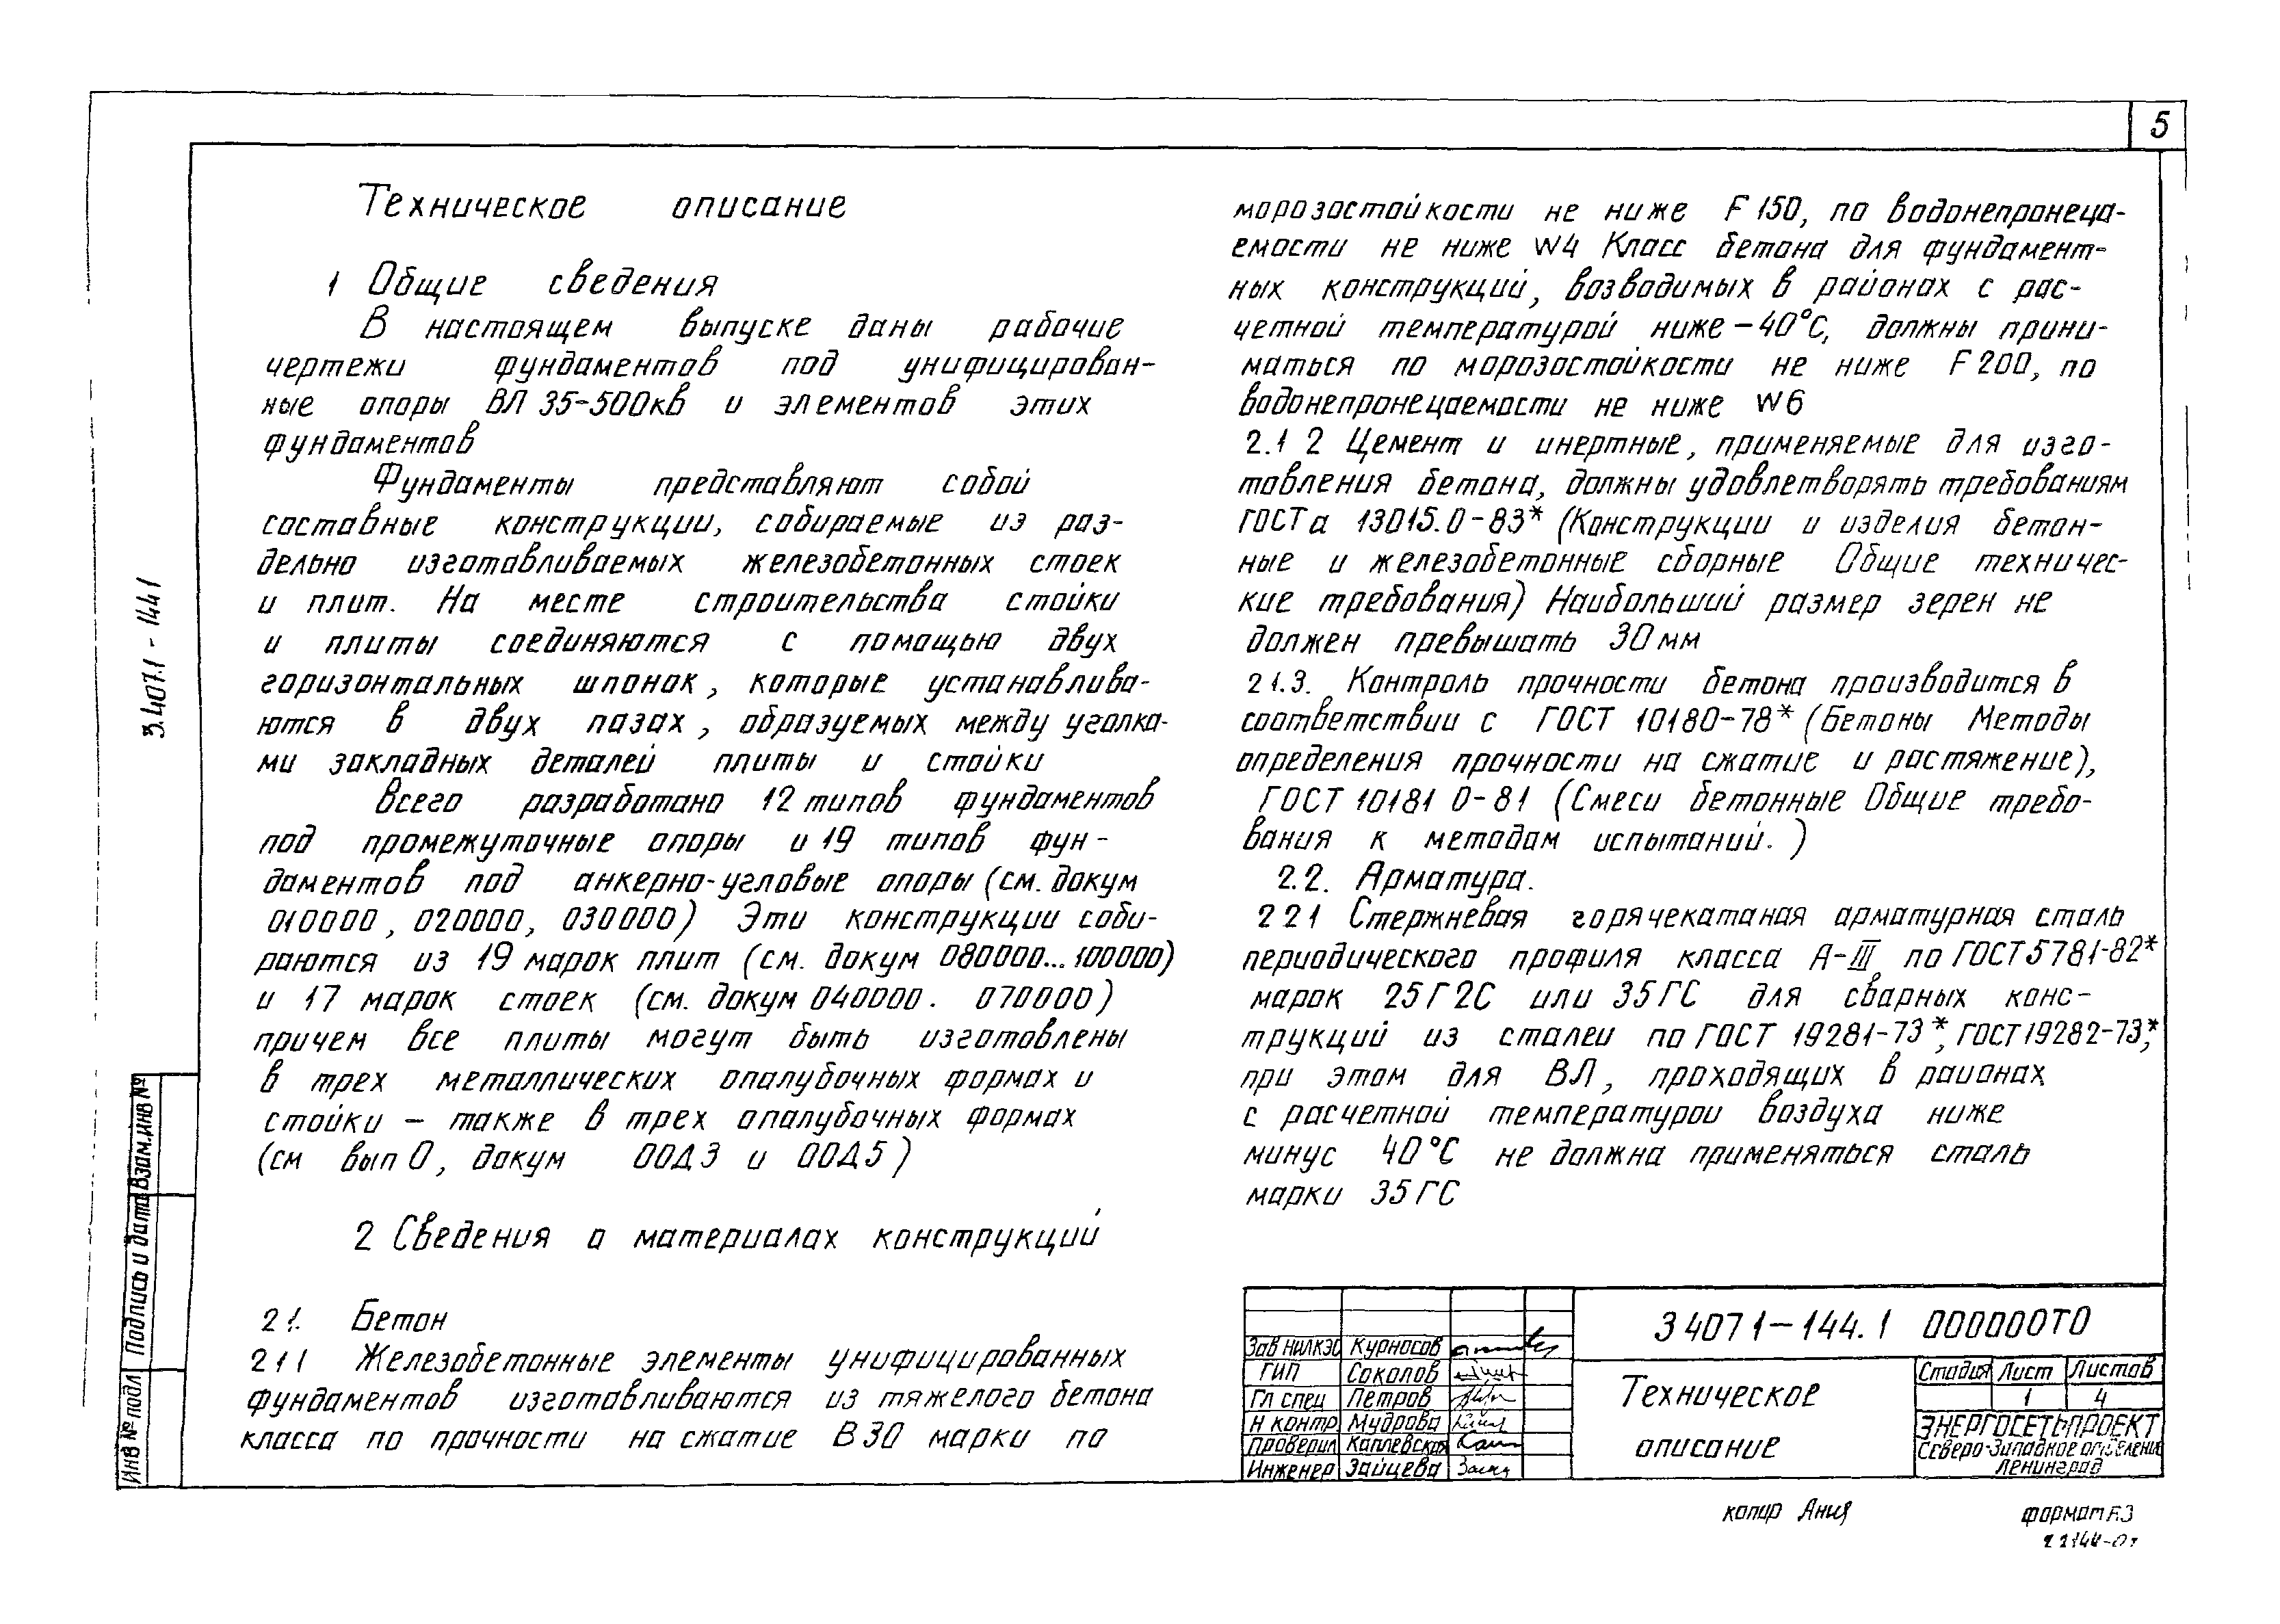 5
Техническое описание
1 Общие сведения
В настоящем выпуске даны рабочие
чертежи фундаментов под унифицирован-
ные опоры ВЛ 35-500кВ и элементов этих
фундаментов
Фундаменты представляют собой
составные конструкции, собираемые из раз-
дельно изготавливаемых железобетонных стоек
и плит. На месте строительства стойки
и плиты соединяются с помощью двух
горизонтальных шпонок, которые устанавлива-
ются в двух пазах, образуемых между уголка-
ми закладных деталей плиты и стойки
Всего разработано 12 типов фундаментов
под промежуточные опоры и 19 типов фун-
даментов под анкерно-угловые опоры (см. докум
010000, 020000, 030000) Эти конструкции соби-
раются из 19 марок плит (см. докум 080000...100000)
и 17 марок стоек (см. докум 040000. 070000)
причем все плиты могут быть изготовлены
в трех металлических опалубочных формах и
стойки - также в трех опалубочных формах
(см вып 0, докум 00Д3 и 00Д5)
2 Сведения о материалах конструкций
2 1. Бетон
2 1 1 Железобетонные элементы унифицированных
фундаментов изготавливаются из тяжелого бетона
класса по прочности на сжатие В30 марки по
морозостойкости не ниже F 150, по водонепронеца-
емости не ниже W4 Класс бетона для фундамент-
ных конструкций, возводимых в районах с рас-
четной температурой ниже -40°С, должны прини-
маться по морозостойкости не ниже F 200, по
водонепронецаемости не ниже W6
2.1 2 Цемент и инертные, применяемые для изго-
товления бетона, должны удовлетворять требованиям
ГОСТа 13015.0-83* (Конструкции и изделия бетон-
ные и железобетонные сборные Общие техничес-
кие требования) Наибольший размер зерен не
должен превышать 30 мм
2 1.3. Контроль прочности бетона производится в
соответствии с ГОСТ 10180-78* (Бетоны Методы
определения прочности на сжатие и растяжение),
ГОСТ 10181 0-81 (Смеси бетонные Общие требо-
вания к методам испытаний.)
2.2. Арматура.
2 2 1 Стержневая горячекатаная арматурная сталь
периодического профиля класса А-III по ГОСТ 5781-82*
марок 25Г2С или 35ГС для сварных конс-
трукций из сталеи по ГОСТ 19281-73*, ГОСТ 19282-73*,
при этом для ВЛ, проходящих в раионах
с расчетной температурои воздуха ниже
минус 40°С не должна применяться сталь
марки 35ГС
3.407.1-144 1
Взам.инв №
Подпись и дата
Инв № подл
Зав НИЛКЭС Курносов
ГИП Соколов
Гл спец Петров
Н контр Мудрова
Проверил Каплевская
Инженер Зайцева
3 407 1-144.1 000000ТО
Техническое
описание
Стадия Лист Листов
1 4
ЭНЕРГОСЕТЬПРОЕКТ
Северо-Западное отделение
Ленинград
копир Анця
формат А3